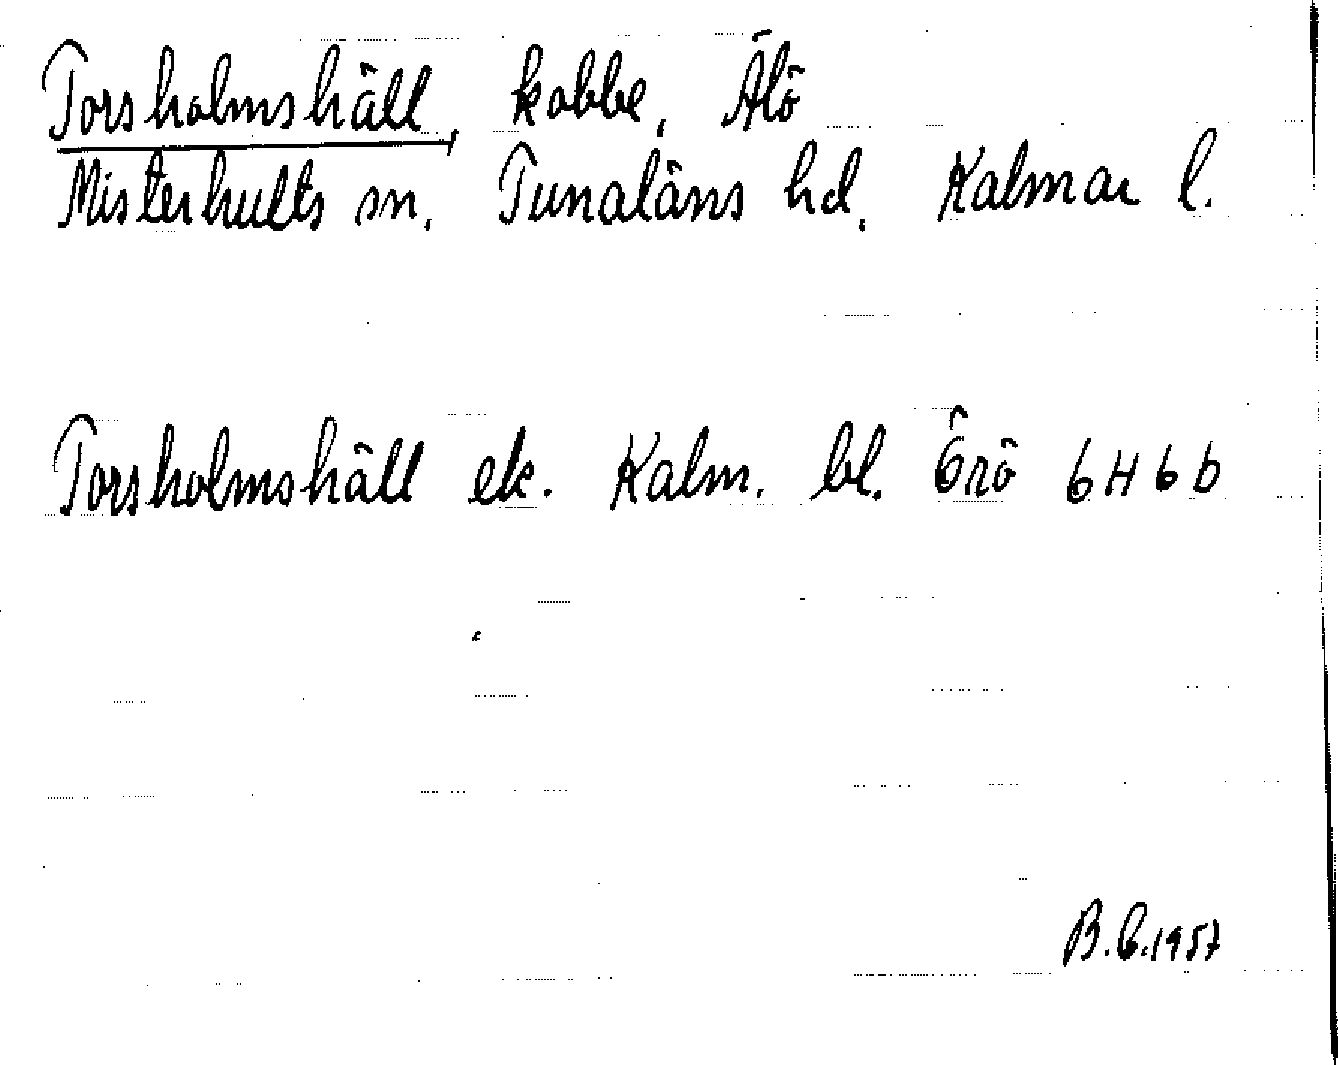 Torsholmshäll, kobbe, Älö
Misterhults sn. Tunaläns hd. Kalmar l.
Torsholmshäll ek. Kalm. bl. Örö 6H6b
B.C.1957